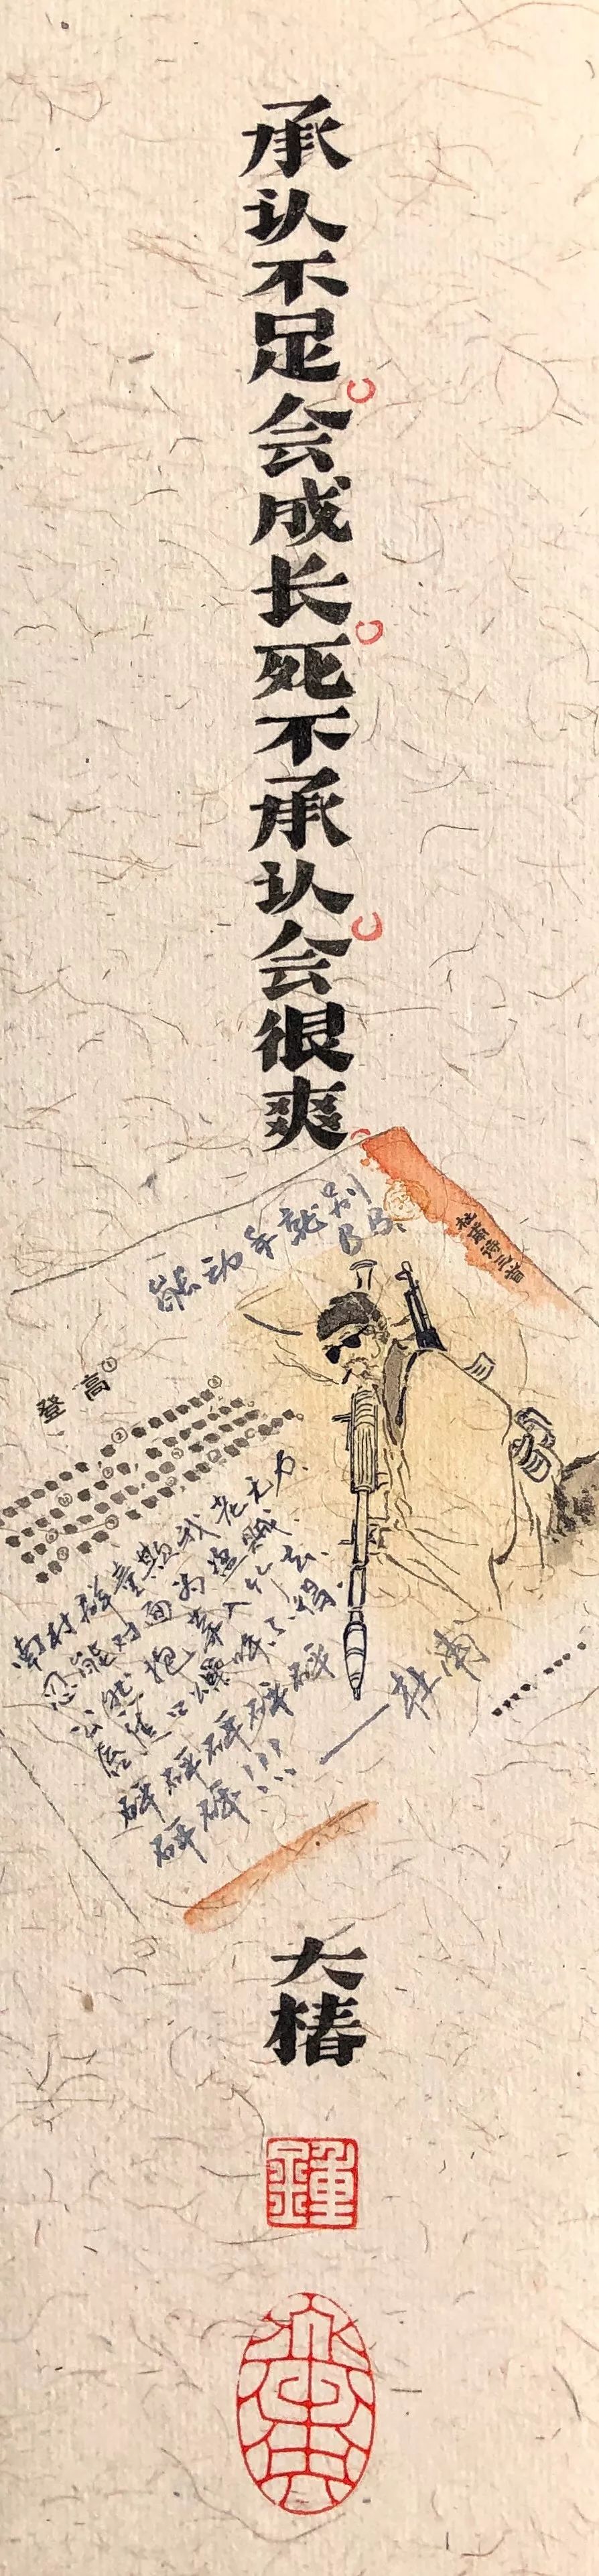 承认不足会成长死不承认会很爽
能动手就别BB
杜甫诗三首
登高①
南村群童欺我老无力、
忍能对面为盗贼、
公然抱茅入竹去、
唇焦口燥呼不得、
砰砰砰砰砰
砰砰!!!
——杜甫
大椿
鍾